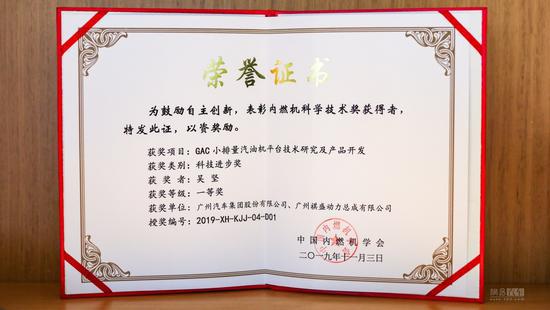 荣誉证书
为鼓励自主创新，表彰内燃机科学技术奖获得者，
特发此证，以资奖励。
获奖项目：GAC 小排量汽油机平台技术研究及产品开发
获奖类别：科技进步奖
获 奖 者：吴 坚
获奖等级：一等奖
获奖单位：广州汽车集团股份有限公司、广州祺盛动力总成有限公司
授奖编号：2019-XH-KJJ-04-001
中国内燃机学会
二〇一九年十一月三日
网易汽车